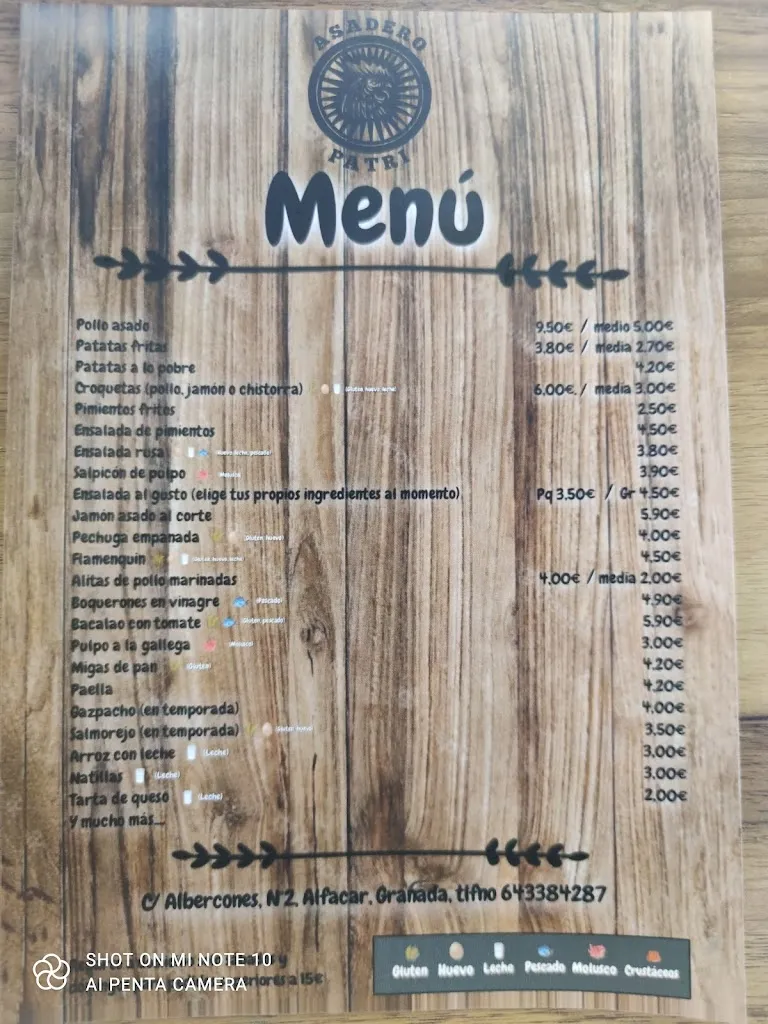 ASADERO
PATRI
Menú
Pollo asado 9,50€ / medio 5,00€
Patatas fritas 3,80€ / media 2,70€
Patatas a lo pobre 4,20€
Croquetas (pollo, jamón o chistorra) (Gluten huevo leche) 6,00€ / media 3,00€
Pimientos fritos 2,50€
Ensalada de pimientos 4,50€
Ensalada rusa (Huevo leche pescado) 3,80€
Salpicón de pulpo (Molusco) 3,90€
Ensalada al gusto (elige tus propios ingredientes al momento) Pq 3,50€ / Gr 4,50€
Jamón asado al corte 5,90€
Pechuga empanada (Gluten huevo) 4,00€
Flamenquin (Gluten huevo leche) 4,50€
Alitas de pollo marinadas 4,00€ / media 2,00€
Boquerones en vinagre (Pescado) 4,90€
Bacalao con tomate (Gluten pescado) 5,90€
Pulpo a la gallega (Molusco) 3,00€
Migas de pan (Gluten) 4,20€
Paella 4,20€
Gazpacho (en temporada) 4,00€
Salmorejo (en temporada) (Gluten huevo) 3,50€
Arroz con leche (Leche) 3,00€
Natillas (Leche) 3,00€
Tarta de queso (Leche) 2,00€
Y mucho más...
C/ Albercones, Nº2, Alfacar, Granada, tlfno 643384287
Gluten Huevo Leche Pescado Molusco Crustáceos
y
a 15€
SHOT ON MI NOTE 10
AI PENTA CAMERA